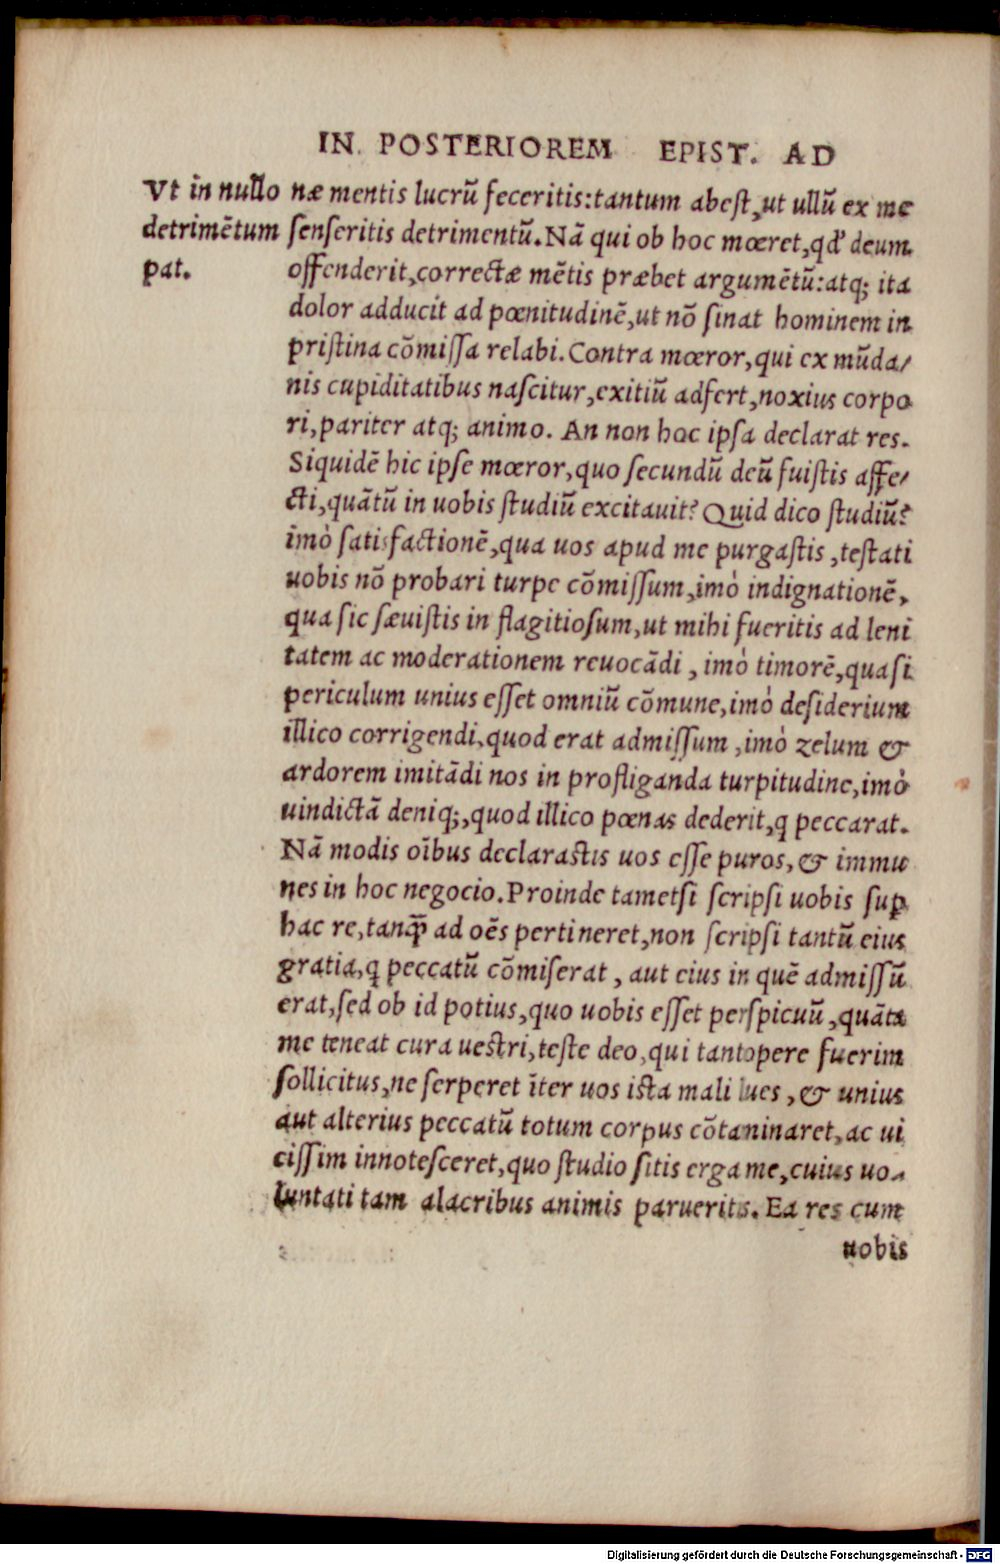 IN POSTERIOREM EPIST. AD
Vt in nullo
detrimētum
pat.
næ mentis lucrū feceritis:tantum abest,ut ullū ex me
senseritis detrimentū.Nā qui ob hoc mœret,qd' deum
offenderit,correctæ mētis præbet argumētū:atq; ita
dolor adducit ad pœnitudinē,ut nō sinat hominem in
pristina cōmissa relabi.Contra mœror,qui ex mūda/
nis cupiditatibus nascitur,exitiū adfert,noxius corpo
ri,pariter atq; animo. An non hoc ipsa declarat res.
Siquidē hic ipse mœror,quo secundū deū fuistis affe/
cti,quātū in uobis studiū excitauit? Quid dico studiū?
imò satisfactionē,qua uos apud me purgastis,testati
uobis nō probari turpe cōmissum,imò indignationē,
qua sic sæuistis in flagitiosum,ut mihi fueritis ad leni
tatem ac moderationem reuocādi, imò timorē,quasi
periculum unius esset omniū cōmune,imò desiderium
illico corrigendi,quod erat admissum,imò zelum &
ardorem imitādi nos in profliganda turpitudine,imò
uindictā deniq;,quod illico pœnas dederit,q peccarat.
Nā modis oībus declarastis uos esse puros,& immu
nes in hoc negocio.Proinde tametsi scripsi uobis sup
hac re,tanq̄ ad oēs pertineret,non scripsi tantū eius
gratia,q peccatū cōmiserat, aut eius in quē admissū
erat,sed ob id potius,quo uobis esset perspicuū,quāta
me teneat cura uestri,teste deo,qui tantopere fuerim
sollicitus,ne serperet īter uos ista mali lues,& unius
aut alterius peccatū totum corpus cōtaminaret,ac ui
cissim innotesceret,quo studio sitis erga me,cuius uo-
luntati tam alacribus animis parueritis. Ea res cum
uobis
Digitalisierung gefördert durch die Deutsche Forschungsgemeinschaft - DFG